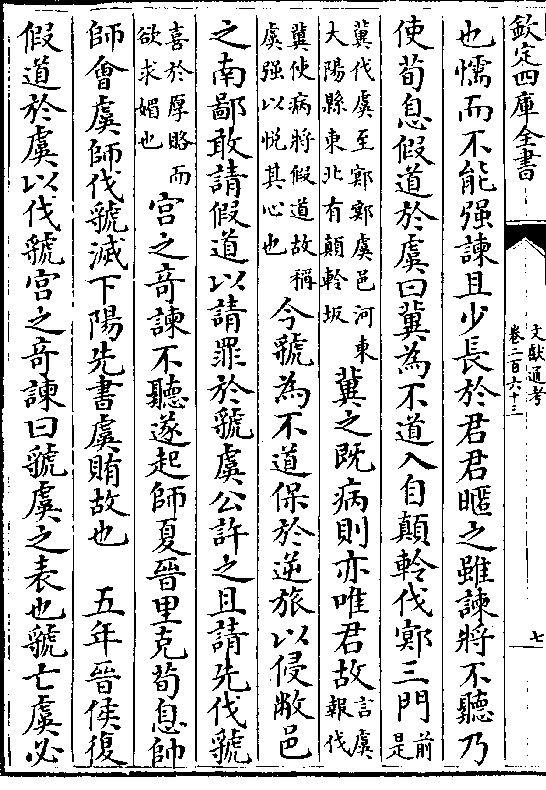 欽定四庫全書
文獻通考
卷二百六十三
七
也懦而不能强諫且少長於君君暱之雖諫將不聽乃
使荀息假道於虞曰冀為不道入自顛軨伐鄍三門前是
冀伐虞至鄍鄍虞邑河東
大陽縣東北有顛軨坂
冀之既病則亦唯君故言虞報伐
冀使病將假道故稱
虞强以悦其心也
今虢為不道保於逆旅以侵敝邑
之南鄙敢請假道以請罪於虢虞公許之且請先伐虢
喜於厚賂而
欲求媚也
宫之竒諫不聽遂起師夏晉里克荀息帥
師會虞師伐虢滅下陽先書虞賄故也　五年晉侯復
假道於虞以伐虢宫之竒諫曰虢虞之表也虢亡虞必